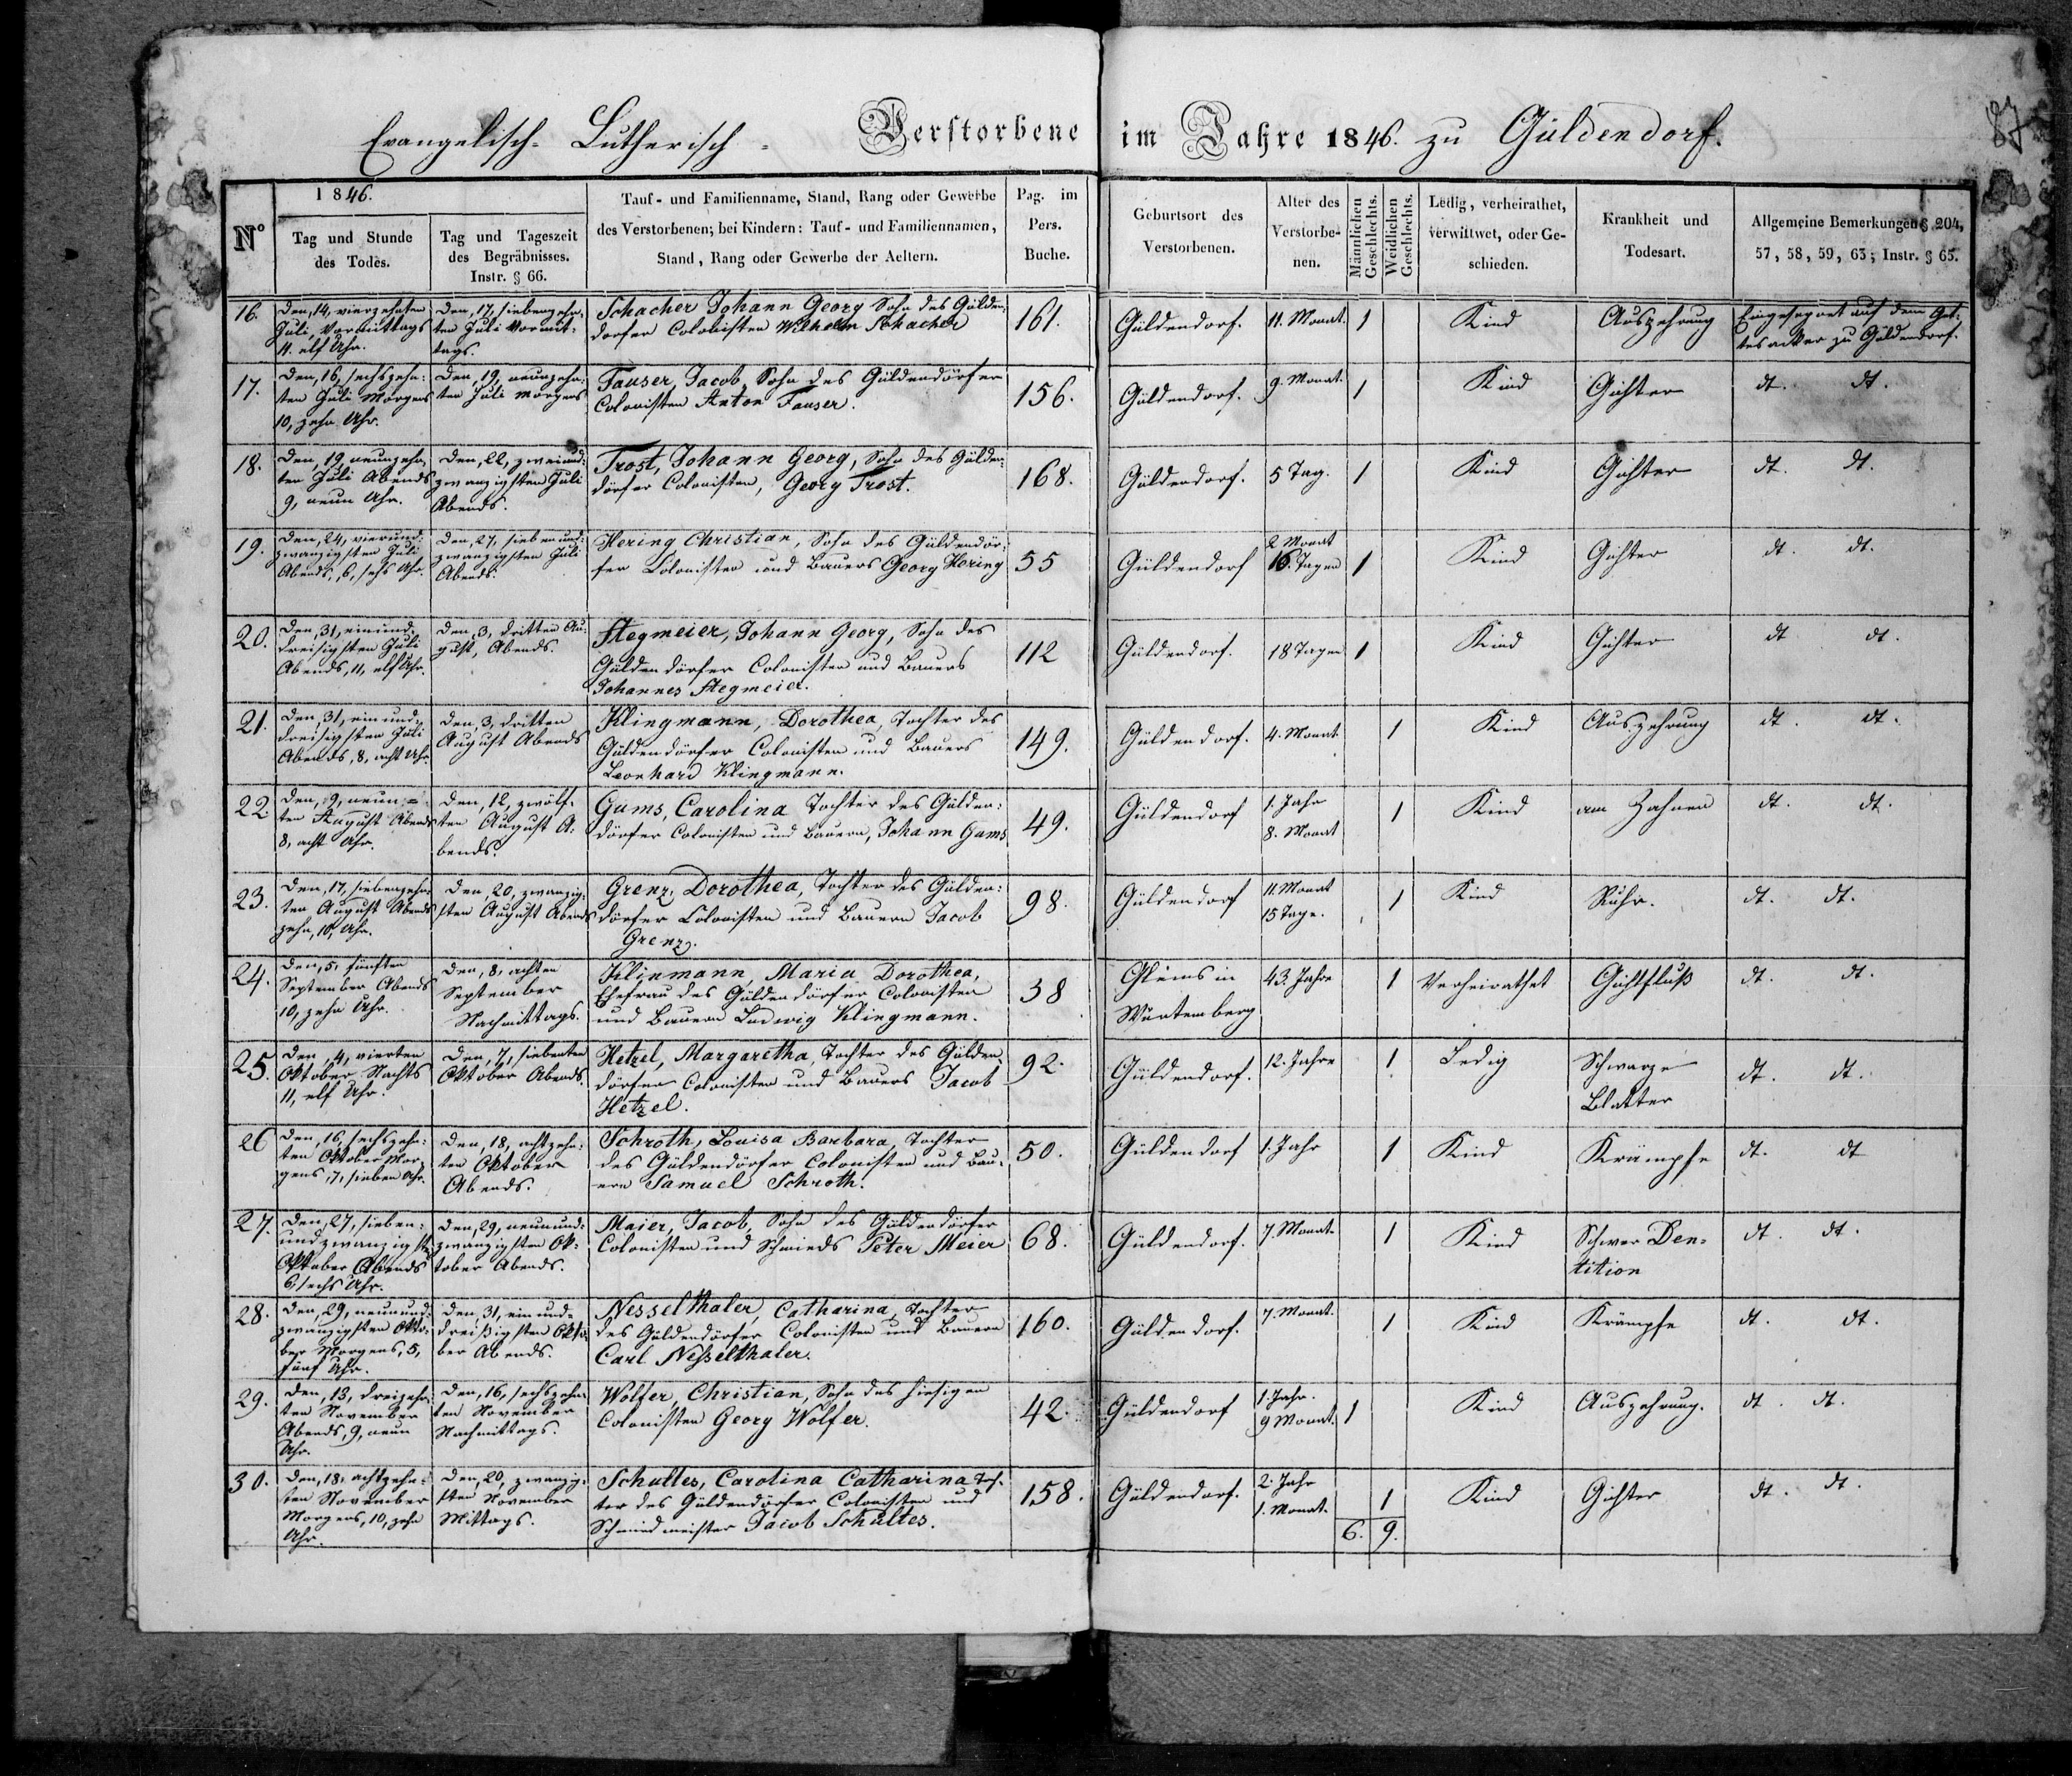 Evangelisch-Lutherisch- Verstorbene im Jahre 1846. zu Güldendorf.
87
No
1846.
Tag und Stunde
des Todes.
Tag und Tageszeit
des Begräbnisses.
Instr. § 66.
Tauf- und Familienname, Stand, Rang oder Gewerbe
des Verstorbenen; bei Kindern: Tauf- und Familiennamen,
Stand, Rang oder Gewerbe der Aeltern.
Pag. im
Pers.
Buche.
Geburtsort des
Verstorbenen.
Alter des
Verstorbe-
nen.
Männlichen
Geschlechts.
Weiblichen
Geschlechts.
Ledig, verheirathet,
verwittwet, oder Ge-
schieden.
Krankheit und
Todesart.
Allgemeine Bemerkungen § 204,
57, 58, 59, 63; Instr. § 65.
16.
Den, 14, vierzehnten
Juli, Vormittags
11. elf Uhr.
Den, 17, siebenzehn-
ten Juli Vormit-
tags.
Schacher Johann Georg Sohn des Gülden-
dorfer Colonisten Wilhelm Schacher
161.
Güldendorf.
11. Monat.
1
Kind
Auszehrung
Eingesegnet auf dem Got-
tesacker zu Güldendorf.
17.
Den, 16, sechszehn-
ten Juli Morgens
10, zehn Uhr.
Den, 19, neunzehn-
ten Juli morgens
Fauser, Jacob, Sohn des Güldendörfer
Colonisten Anton Fauser.
156.
Güldendorf.
9. Monat.
1
Kind
Gichter
dt. dt.
18.
Den, 19, neunzehn-
ten Juli Abends
9, neun Uhr.
Den, 22, zweiund-
zwanzigsten Juli
Abends.
Trost, Johann Georg, Sohn des Gülden-
dörfer Colonisten, Georg Trost.
168.
Güldendorf.
5 Tag.
1
Kind
Gichter
dt. dt.
19.
Den, 24, vierund-
zwanzigsten Juli
Abends, 6, sechs Uhr.
Den, 27, siebenund-
zwanzigsten Juli
Abends.
Hering Christian, Sohn des Güldendör-
fer Colonisten und Bauers Georg Hering
55
Güldendorf
2 Monat
16. Tagen
1
Kind
Gichter
dt. dt.
20.
Den, 31, einund
dreisigsten Juli
Abends, 11, elf Uhr.
Den, 3, dritten Au-
gust, Abends.
Stegmeier, Johann Georg, Sohn des
Güldendörfer Colonisten und Bauers
Johannes Stegmeier.
112
Güldendorf.
18 Tagen
1
Kind
Gichter
dt dt.
21.
Den, 31, ein und-
dreisigsten Juli
Abends, 8, acht Uhr
Den, 3, dritten
August Abends
Klingmann, Dorothea, Tochter des
Güldendörfer Colonisten und Bauers
Leonhard Klingmann.
149.
Güldendorf.
4. Monat.
1
Kind
Auszehrung
dt. dt.
22
Den, 9, neun-
ten August Abends
8, acht Uhr.
Den, 12, zwölf-
ten August A-
bends.
Gums, Carolina Tochter des Gülden-
dörfer Colonisten und Bauern, Johann Gums
49.
Güldendorf
1. Jahr
8. Monat
1
Kind
am Zahnen
dt. dt.
23.
Den, 17, siebenzehn-
ten August Abends
zehn, 10, Uhr.
Den, 20, zwanzig-
sten August Abends
Grenz, Dorothea, Tochter des Gülden-
dörfer Colonisten und Bauern Jacob
Grenz.
98.
Güldendorf
11. Monat
15 Tage.
1
Kind
Ruhr.
dt. dt.
24.
Den, 5, fünften
September Abends
10, zehn Uhr.
Den, 8, achten
September
Nachmittags.
Klinmann, Maria Dorothea,
Ehefrau des Güldendörfer Colonisten
und Bauern Ludwig Klingmann.
38
Glems in
Würtemberg
43. Jahre
1
Verheirathet
Gichtfluß
dt. dt.
25.
Den, 4, vierten
Oktober Nachts
11, elf Uhr.
Den, 7, siebenten
Oktober Abends.
Hetzel, Margaretha, Tochter des Gülden-
dörfer Colonisten und Bauers Jacob
Hetzel.
92.
Güldendorf.
12. Jahre
1
Ledig
Schwarze
Blatter
dt. dt.
26
Den, 16, sechszehn-
ten Oktober Mor-
gens, 7, sieben Uhr.
Den, 18, achtzehn-
ten Oktober
Abends.
Schroth, Louisa Barbara, Tochter
des Güldendörfer Colonisten und Bau-
ern Samuel Schroth.
50.
Güldendorf
1. Jahr
1
Kind
Krämpfe
dt. dt
27.
Den, 27, sieben-
undzwanzigsten
Oktober Abends
6, sechs Uhr.
Den, 29, neunund-
zwanzigsten Ok-
tober Abends.
Maier, Jacob, Sohn des Güldendörfer
Colonisten und Schmieds Peter Meier
68.
Güldendorf.
7. Monat.
1
Kind
Schwer Den-
tition
dt. dt.
28.
Den, 29, neunund-
zwanzigsten Okto-
ber Morgens, 5,
fünf Uhr.
Den, 31, ein und-
dreißigsten Okto-
ber Abends.
Nesselthaler, Catharina, Tochter
des Güldendörfer Colonisten und Bauern
Carl Nesselthaler.
160.
Güldendorf.
7. Monat.
1
Kind
Krämpfe
dt. dt.
29.
Den, 13, dreizehn-
ten November
Abends, 9, neun
Uhr.
Den, 16, sechszehn-
ten November
Nachmittags.
Wolfer, Christian, Sohn des hiesigen
Colonisten Georg Wolfer.
42.
Güldendorf
1. Jahr.
9 Monat.
1
Kind
Auszehrung.
dt. dt.
30.
Den, 18, achtzehn-
ten November
Morgens, 10, zehn
Uhr.
Den, 20, zwanzig-
sten November
Mittags.
Schultes, Carolina Catharina Toch-
ter des Güldendörfer Colonisten und
Schmiedmeister Jacob Schultes.
158.
Güldendorf.
2. Jahr
1. Monat.
1
Kind
Gichter
dt. dt.
6. 9.